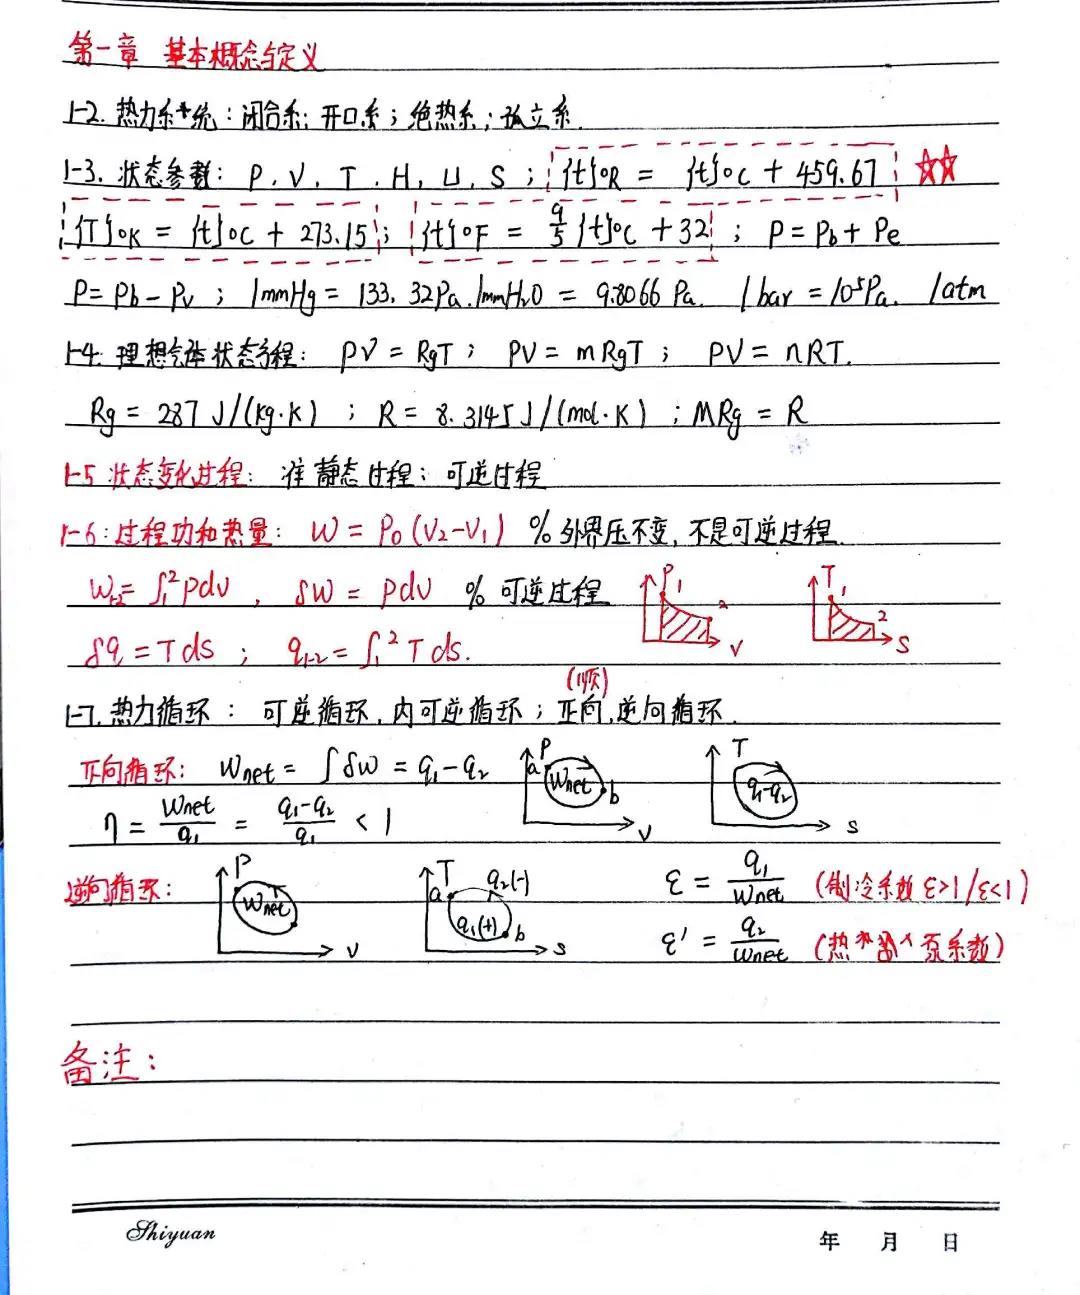 第一章 基本概念与定义
1-2. 热力系统：闭合系；开口系；绝热系；孤立系.
1-3. 状态参数：P. V. T. H. U. S；{t}°R = {t}°C + 459.67； ☆☆
{T}°K = {t}°C + 273.15；{t}°F = 9/5 {t}°C + 32；P = Pb + Pe
P = Pb - Pv；1mmHg = 133.32Pa. 1mmH₂O = 9.8066 Pa. 1bar = 10⁵Pa. 1atm
1-4. 理想气体状态方程：pv = RgT；PV = mRgT；PV = nRT.
Rg = 287 J/(kg·K)；R = 8.3145 J/(mol·K)；MRg = R
1-5 状态变化过程：准静态过程；可逆过程
1-6：过程功和热量：W = P₀(V₂-V₁) % 外界压不变，不是可逆过程.
W₁₋₂ = ∫₁²pdv , δW = pdv % 可逆过程 P 1 2 V T 1 2 S
δq = Tds；q₁₋₂ = ∫₁²Tds.
(顺)
1-7. 热力循环：可逆循环，内可逆循环；正向，逆向循环.
正向循环：Wnet = ∫δw = q₁-q₂ P a Wnet b V T q₁-q₂ S
η = Wnet/q₁ = (q₁-q₂)/q₁ < 1
逆向循环：P Wnet V T a q₂(-) q₁(+) b S ε = q₁/Wnet (制冷系数 ε>1/ε<1)
ε' = q₂/Wnet (热泵系数)
备注：
Shiyuan 年 月 日